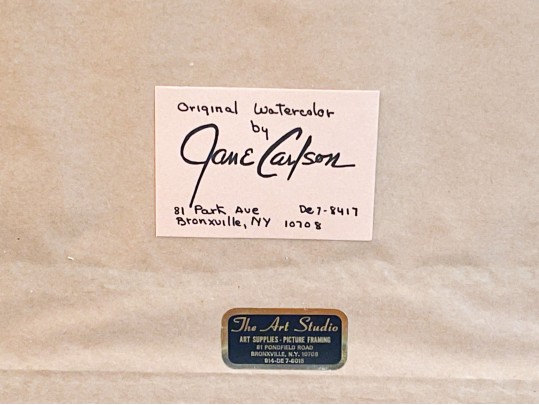 Original Watercolor
by
Jane Carlson
81 Park Ave De7-8417
Bronxville, NY 10708
The Art Studio
ART SUPPLIES - PICTURE FRAMING
81 PONDFIELD ROAD
BRONXVILLE, N.Y. 10708
914-DE 7-6015